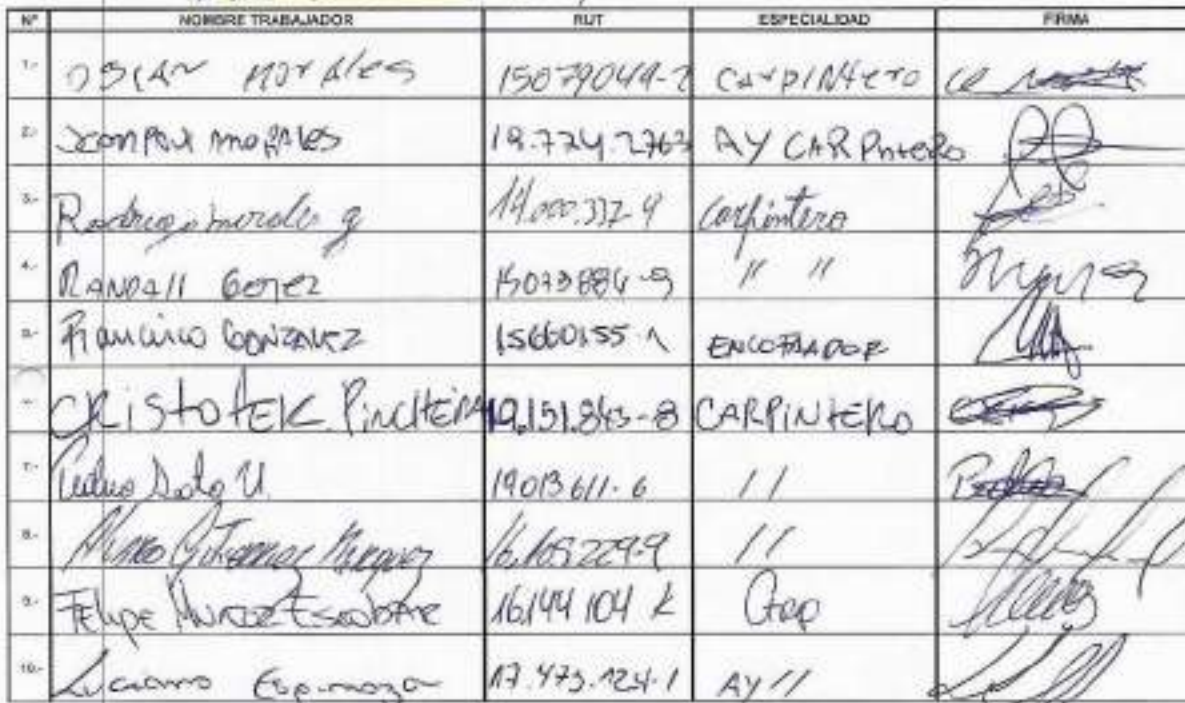 N° NOMBRE TRABAJADOR RUT ESPECIALIDAD FIRMA
1.- OSCAR MORALES 15079049-2 CARPINTERO
2.- MORALES 19.724.2763 AY CARPINTERO
3.- Rodrigo morales g 14.000.337-9 Carpintero
4.- RANDALL GOMEZ 15073884-9 " "
5.- Francisco GONZALEZ 15660155-1 ENCOFRADOR
CRISTOFER PINCHEIRA 19.151.845-8 CARPINTERO
7.- Pedro Soto U. 19013611-6 "
8.- 16.105.229-9 "
9.- FELIPE MUÑOZ ESCOBAR 16.144 104 K Carp
10.- Luciano Espinoza 17.473.124-1 AY "